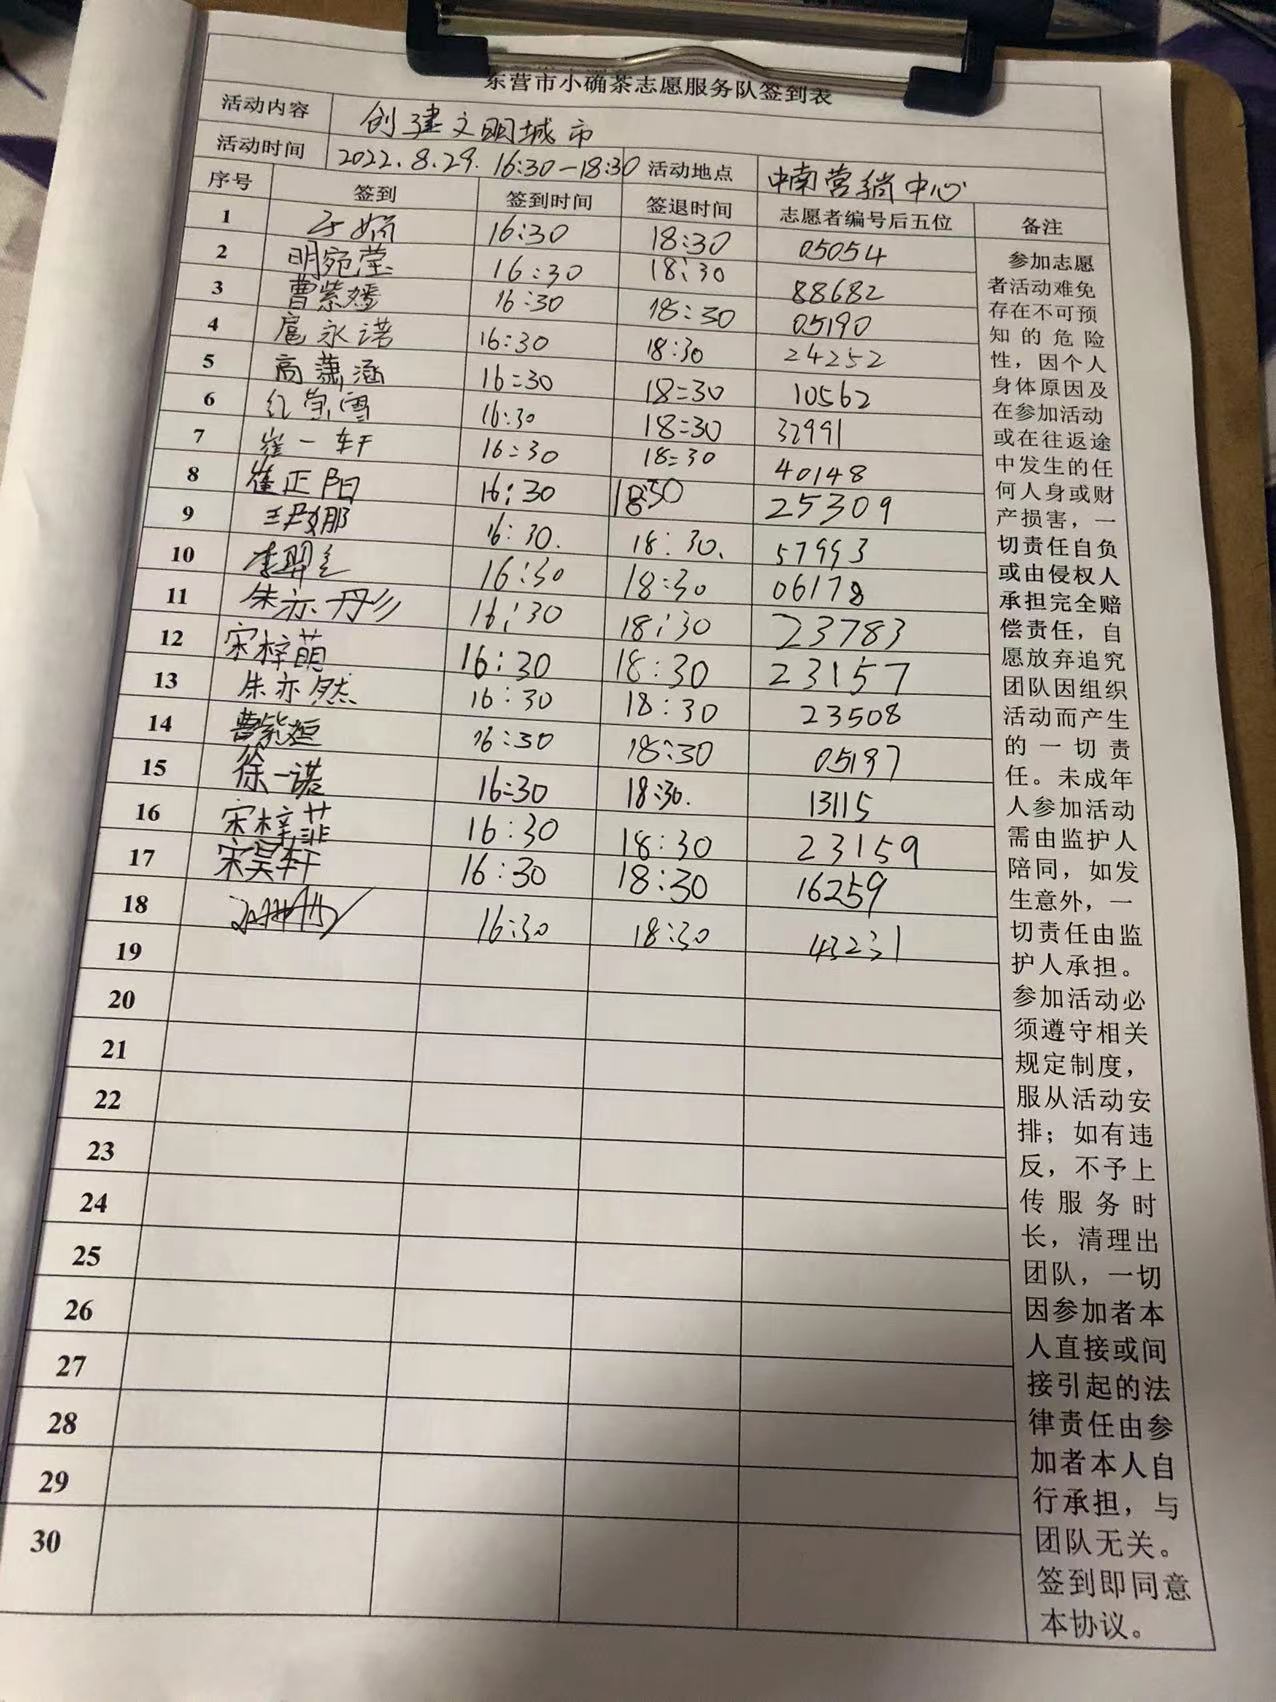 东营市小确茶志愿服务队签到表
活动内容 创建文明城市
活动时间 2022.8.29. 16:30-18:30 活动地点 中南营销中心
序号 签到 签到时间 签退时间 志愿者编号后五位 备注
1 16:30 18:30 05054
2 明宛莹 16:30 18:30 88682
3 曹紫嫣 16:30 18:30 05190
4 扈永诺 16:30 18:30 24252
5 高萧涵 16:30 18:30 10562
6 16:30 18:30 32991
7 崔一轩 16:30 18:30 40148
8 崔正阳 16:30 18:30 25309
9 16:30. 18:30. 57993
10 16:30 18:30 06178
11 朱亦彤 16:30 18:30 23783
12 宋梓萌 16:30 18:30 23157
13 朱亦然 16:30 18:30 23508
14 曹紫烜 16:30 18:30 05197
15 徐一诺 16:30 18:30. 13115
16 宋梓菲 16:30 18:30 23159
17 宋昊轩 16:30 18:30 16259
18 16:30 18:30
19
20
21
22
23
24
25
26
27
28
29
30
参加志愿
者活动难免
存在不可预
知的危险
性，因个人
身体原因及
在参加活动
或在往返途
中发生的任
何人身或财
产损害，一
切责任自负
或由侵权人
承担完全赔
偿责任，自
愿放弃追究
团队因组织
活动而产生
的一切责
任。未成年
人参加活动
需由监护人
陪同，如发
生意外，一
切责任由监
护人承担。
参加活动必
须遵守相关
规定制度，
服从活动安
排；如有违
反，不予上
传服务时
长，清理出
团队，一切
因参加者本
人直接或间
接引起的法
律责任由参
加者本人自
行承担，与
团队无关。
签到即同意
本协议。